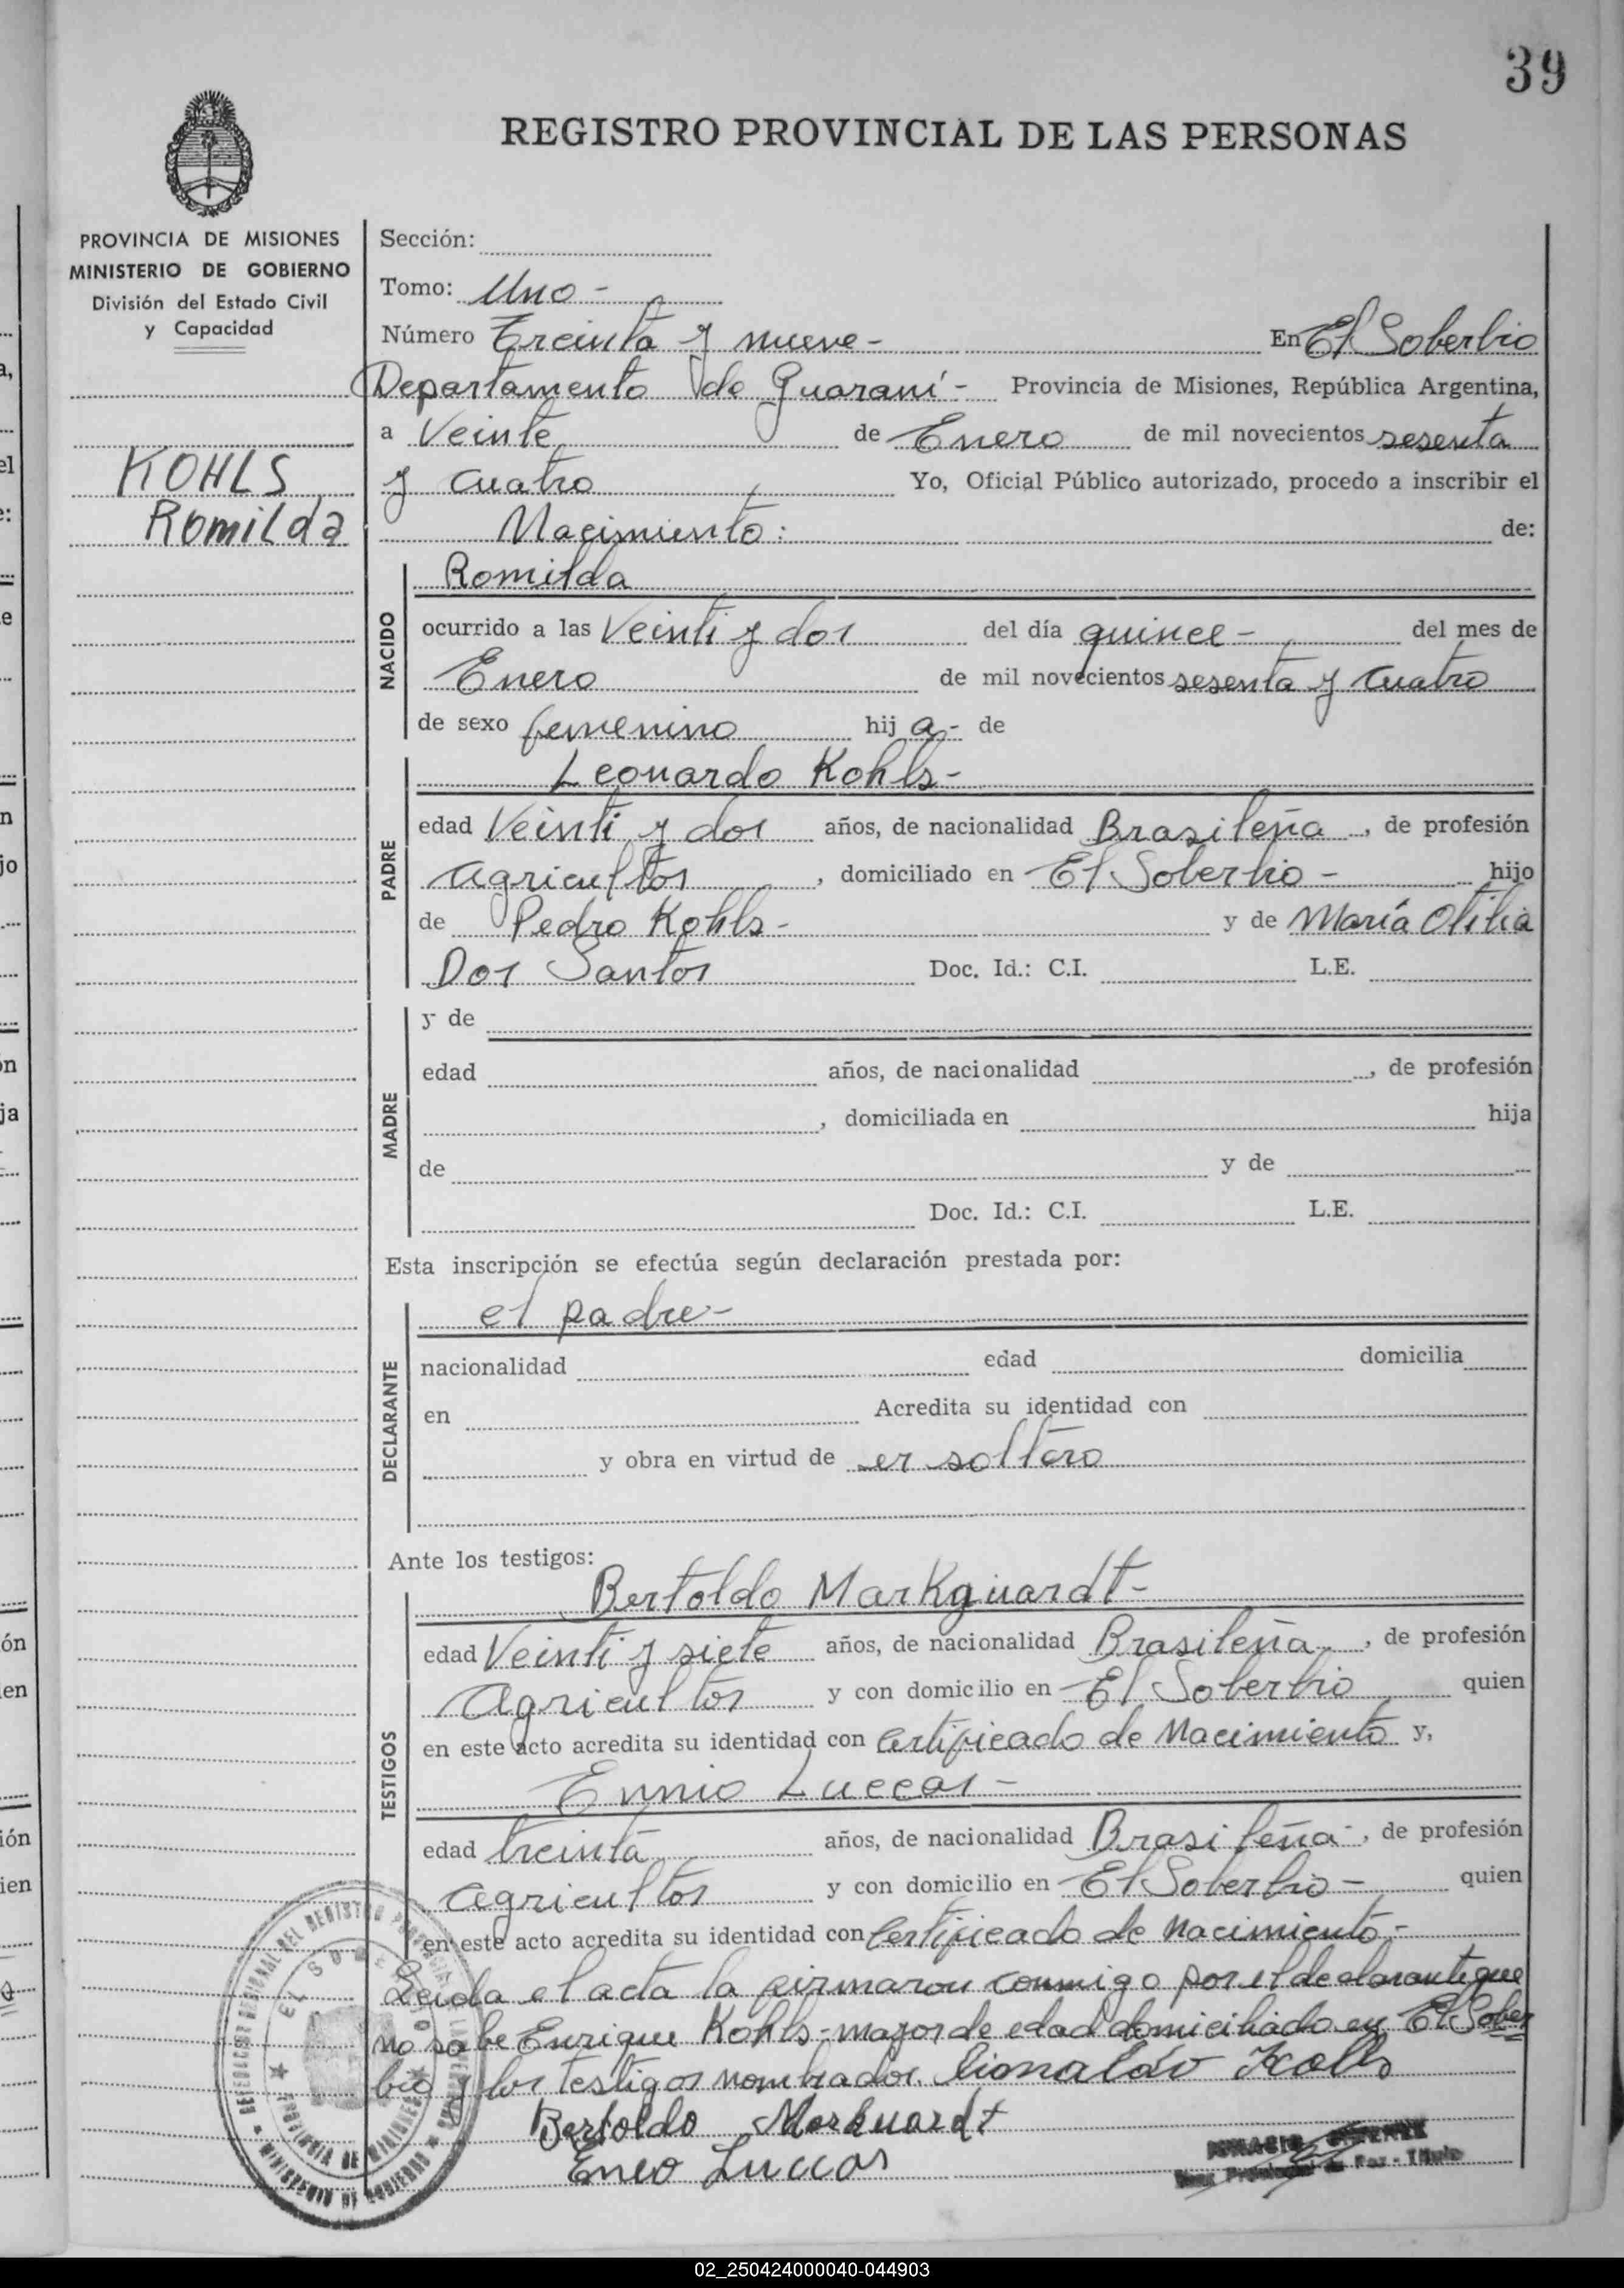 39
REGISTRO PROVINCIAL DE LAS PERSONAS
PROVINCIA DE MISIONES
MINISTERIO DE GOBIERNO
División del Estado Civil
y Capacidad
KOHLS
Romilda
Sección:
Tomo: Uno -
Número Treinta y nueve - En El Soberbio
Departamento de Guaraní - Provincia de Misiones, República Argentina,
a Veinte de Enero de mil novecientos sesenta
y cuatro Yo, Oficial Público autorizado, procedo a inscribir el
Nacimiento: de:
NACIDO
Romilda
ocurrido a las Veinti y dos del día quince - del mes de
Enero de mil novecientos sesenta y cuatro
de sexo femenino hij a - de
PADRE
Leonardo Kohls -
edad Veinti y dos años, de nacionalidad Brasileña, de profesión
agricultor, domiciliado en El Soberbio - hijo
de Pedro Kohls - y de María Otilia
Dos Santos Doc. Id.: C.I. L.E.
MADRE
y de
edad años, de nacionalidad , de profesión
, domiciliada en hija
de y de
Doc. Id.: C.I. L.E.
Esta inscripción se efectúa según declaración prestada por:
DECLARANTE
el padre -
nacionalidad edad domicilia
en Acredita su identidad con
y obra en virtud de er soltero
Ante los testigos:
TESTIGOS
Bertoldo Markguardt -
edad Veinti y siete años, de nacionalidad Brasileña, de profesión
Agricultor y con domicilio en El Soberbio quien
en este acto acredita su identidad con Certificado de Nacimiento y,
Ennio Luccas -
edad treinta años, de nacionalidad Brasileña -, de profesión
agricultor y con domicilio en El Soberbio - quien
en este acto acredita su identidad con Certificado de nacimiento -
Leida el acta la firmaron conmigo por el declarante que
no sabe Enrique Kohls - mayor de edad domiciliado en El Sober
bio y los testigos nombrados.
Bertoldo Markuardt
Eneo Luccas
EL SOBERBIO
PROVINCIA DE MISIONES
MINISTERIO DE GOBIERNO
02_250424000040-044903